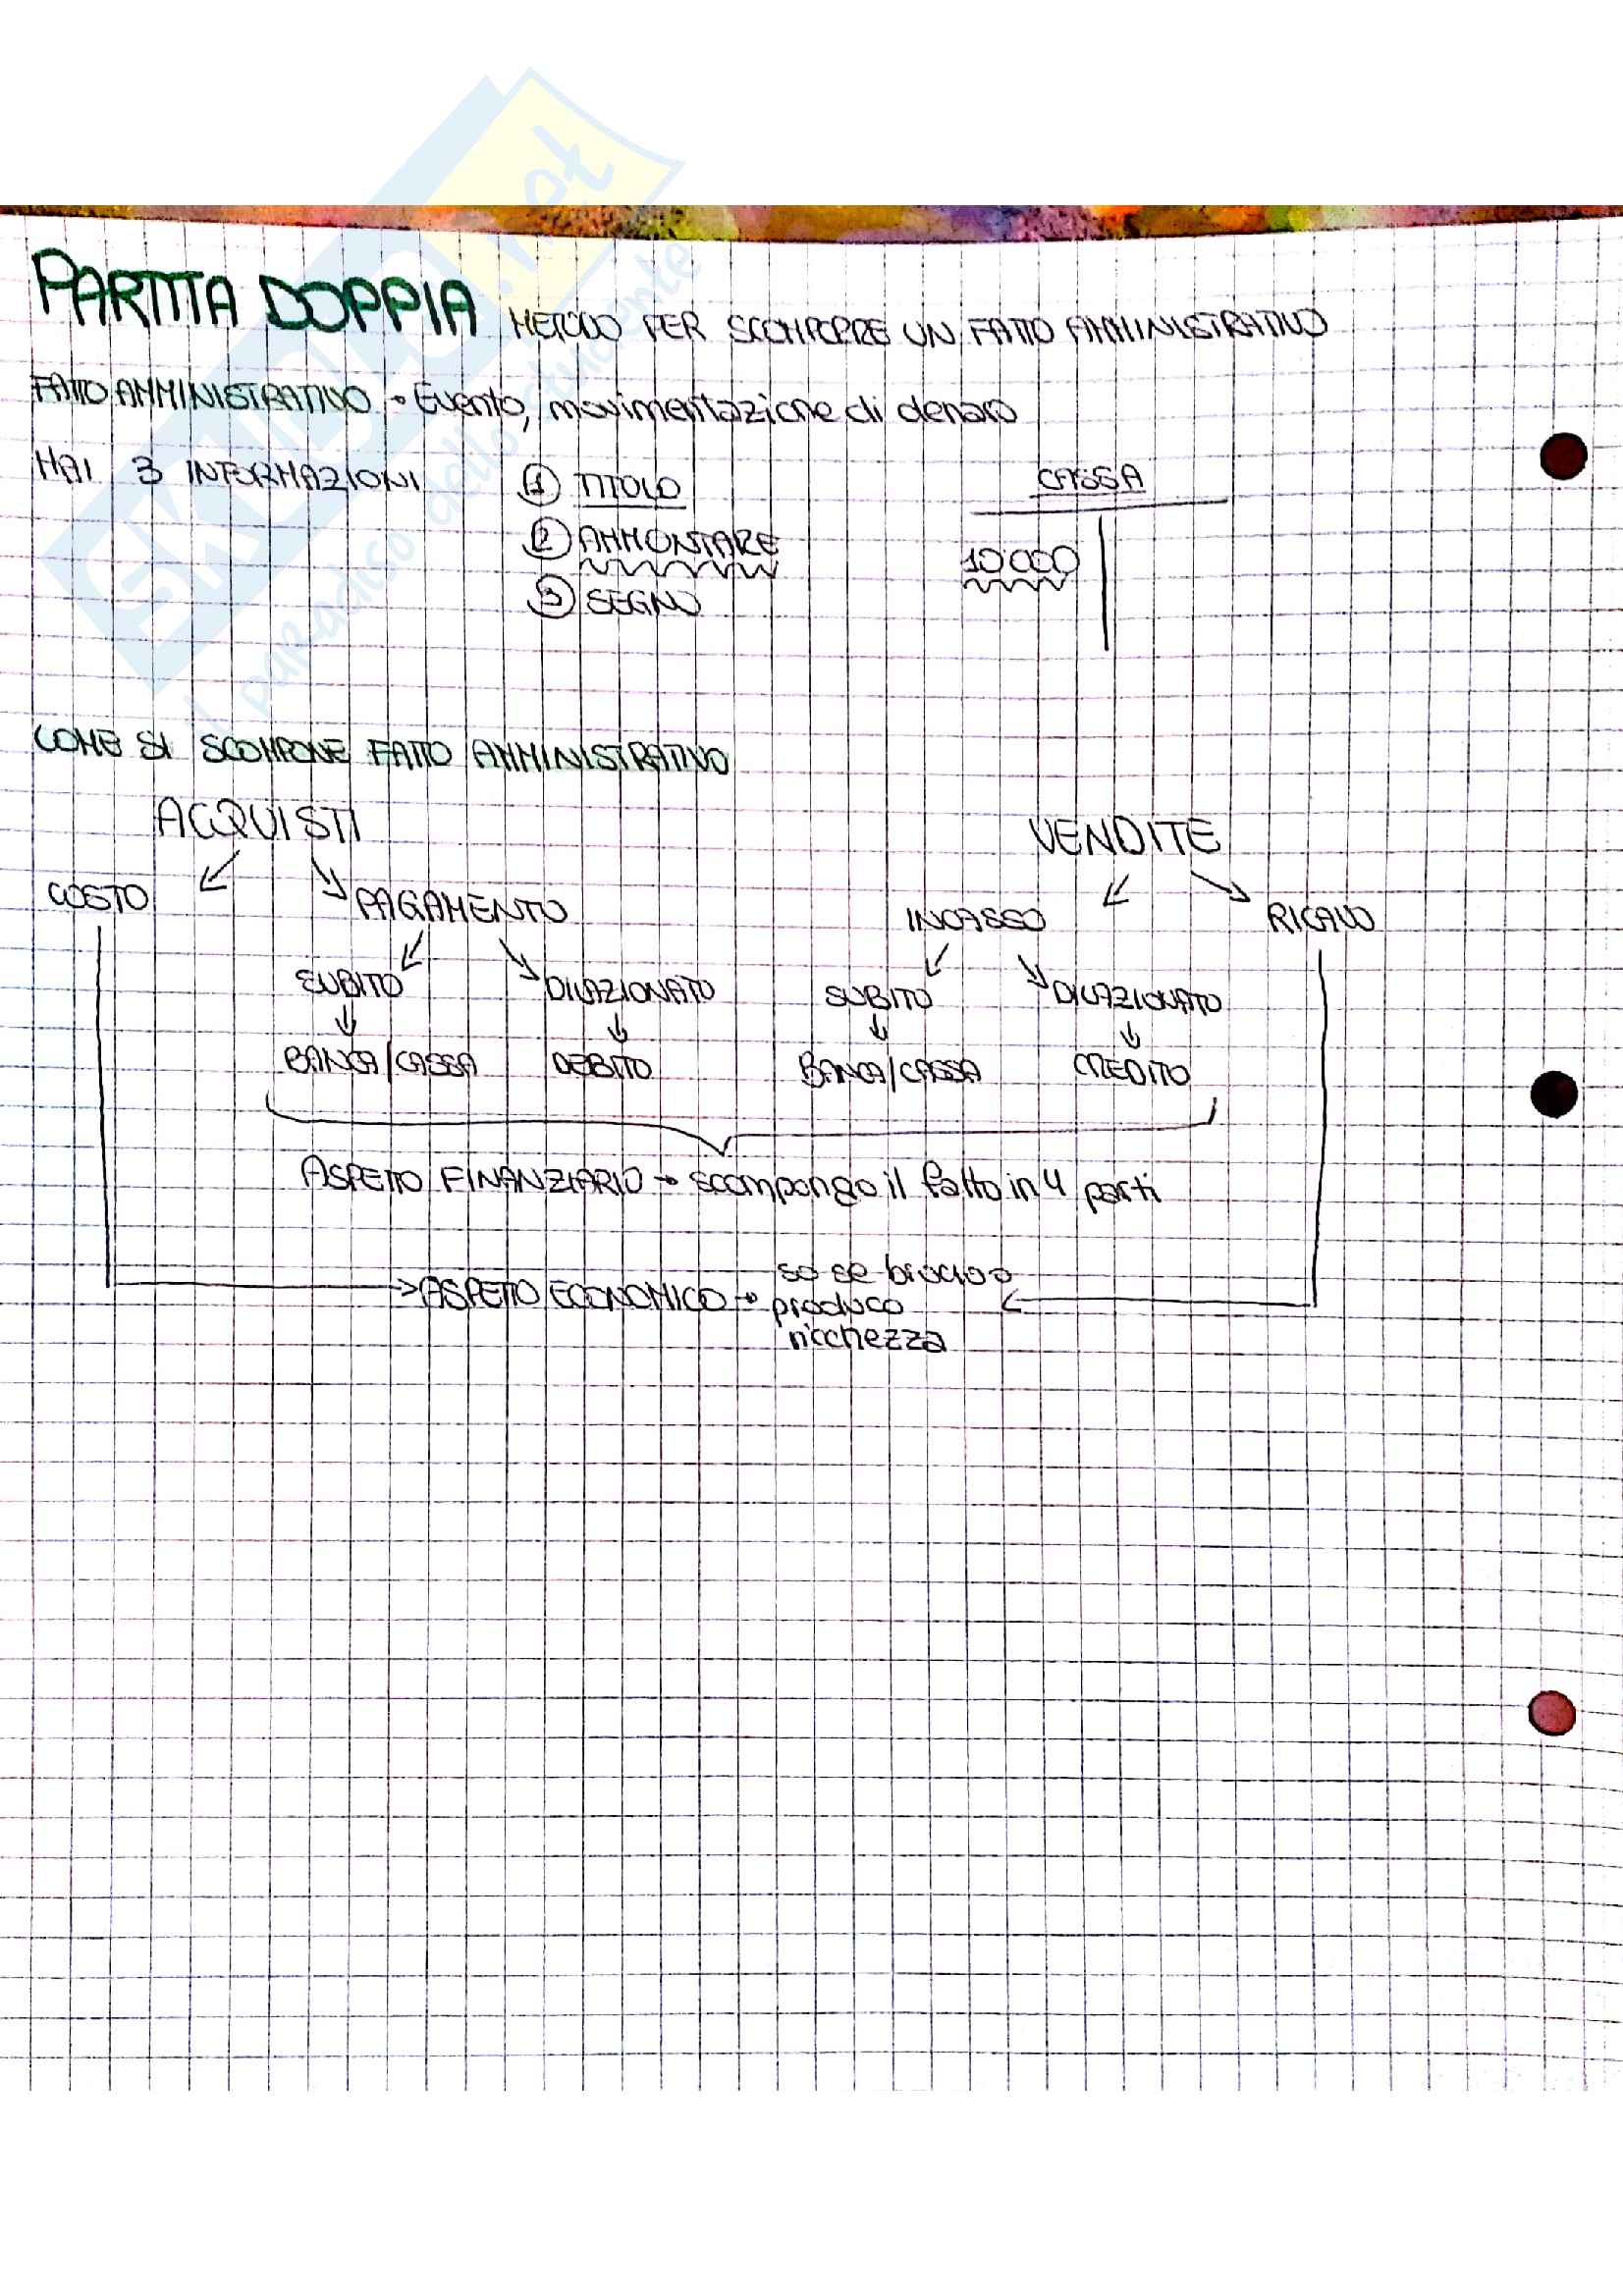 SKUOLA.net
il paradiso dello studente
PARTITA DOPPIA METODO PER SCOMPORRE UN FATTO AMMINISTRATIVO
FATTO AMMINISTRATIVO → Evento, movimentazione di denaro
HAI 3 INFORMAZIONI ① TITOLO CASSA
② AMMONTARE 10'000
③ SEGNO
COME SI SCOMPONE FATTO AMMINISTRATIVO
ACQUISTI VENDITE
COSTO PAGAMENTO INCASSO RICAVO
SUBITO DILAZIONATO SUBITO DILAZIONATO
BANCA/CASSA DEBITO BANCA/CASSA CREDITO
ASPETTO FINANZIARIO → scompongo il fatto in 4 parti
ASPETTO ECONOMICO → so se brucio o
produco
ricchezza